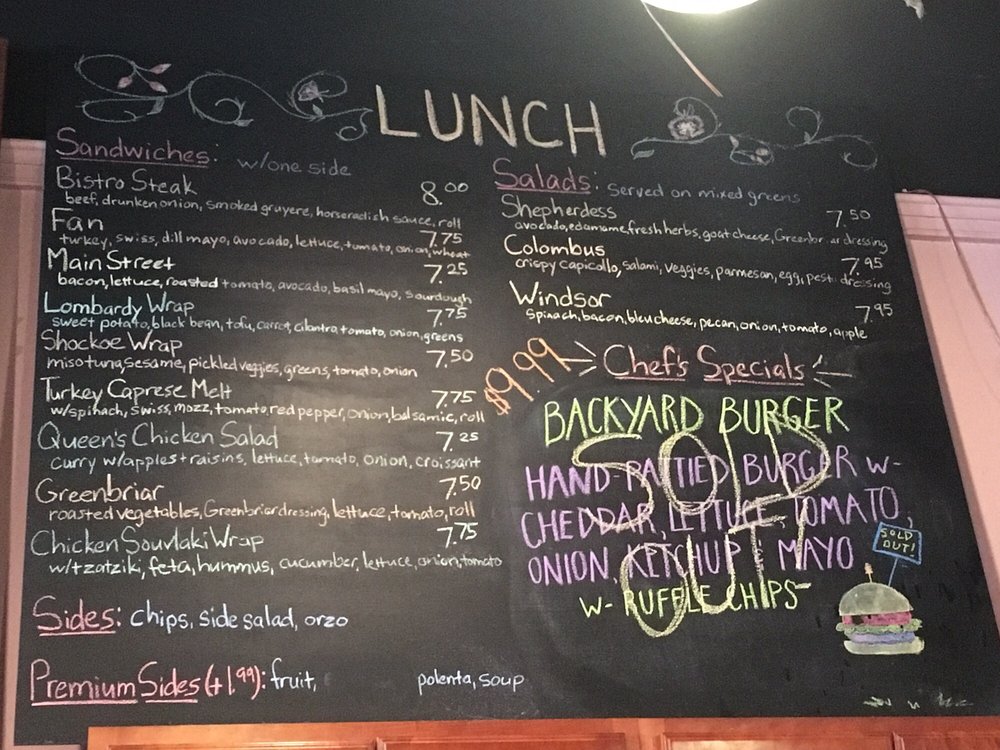 LUNCH
Sandwiches: w/one side
Bistro Steak 8.00
beef, drunken onion, smoked gruyere, horseradish sauce, roll
Fan 7.75
turkey, swiss, dill mayo, avocado, lettuce, tomato, onion, wheat
Main Street 7.25
bacon, lettuce, roasted tomato, avocado, basil mayo, sourdough
Lombardy Wrap 7.75
sweet potato, black bean, tofu, carrot, cilantro, tomato, onion, greens
Shockoe Wrap 7.50
miso tuna, sesame, pickled veggies, greens, tomato, onion
Turkey Caprese Melt 7.75
w/spinach, swiss, mozz, tomato, red pepper, onion, balsamic, roll
Queen's Chicken Salad 7.25
curry w/apples + raisins, lettuce, tomato, onion, croissant
Greenbriar 7.50
roasted vegetables, Greenbriar dressing, lettuce, tomato, roll
Chicken Souvlaki Wrap 7.75
w/tzatziki, feta, hummus, cucumber, lettuce, onion, tomato
Sides: chips, side salad, orzo
Premium Sides (+1.99): fruit, polenta, soup
Salads: served on mixed greens
Shepherdess 7.50
avocado, edamame, fresh herbs, goat cheese, Greenbriar dressing
Colombus 7.95
crispy capicollo, salami, veggies, parmesan, egg, pesto dressing
Windsor 7.95
spinach, bacon, bleu cheese, pecan, onion, tomato, apple
$9.99 Chef's Specials
BACKYARD BURGER
HAND-PATTIED BURGER W-
CHEDDAR, LETTUCE, TOMATO,
ONION, KETCHUP & MAYO
W- RUFFLE CHIPS-
SOLD
OUT
SOLD
OUT!